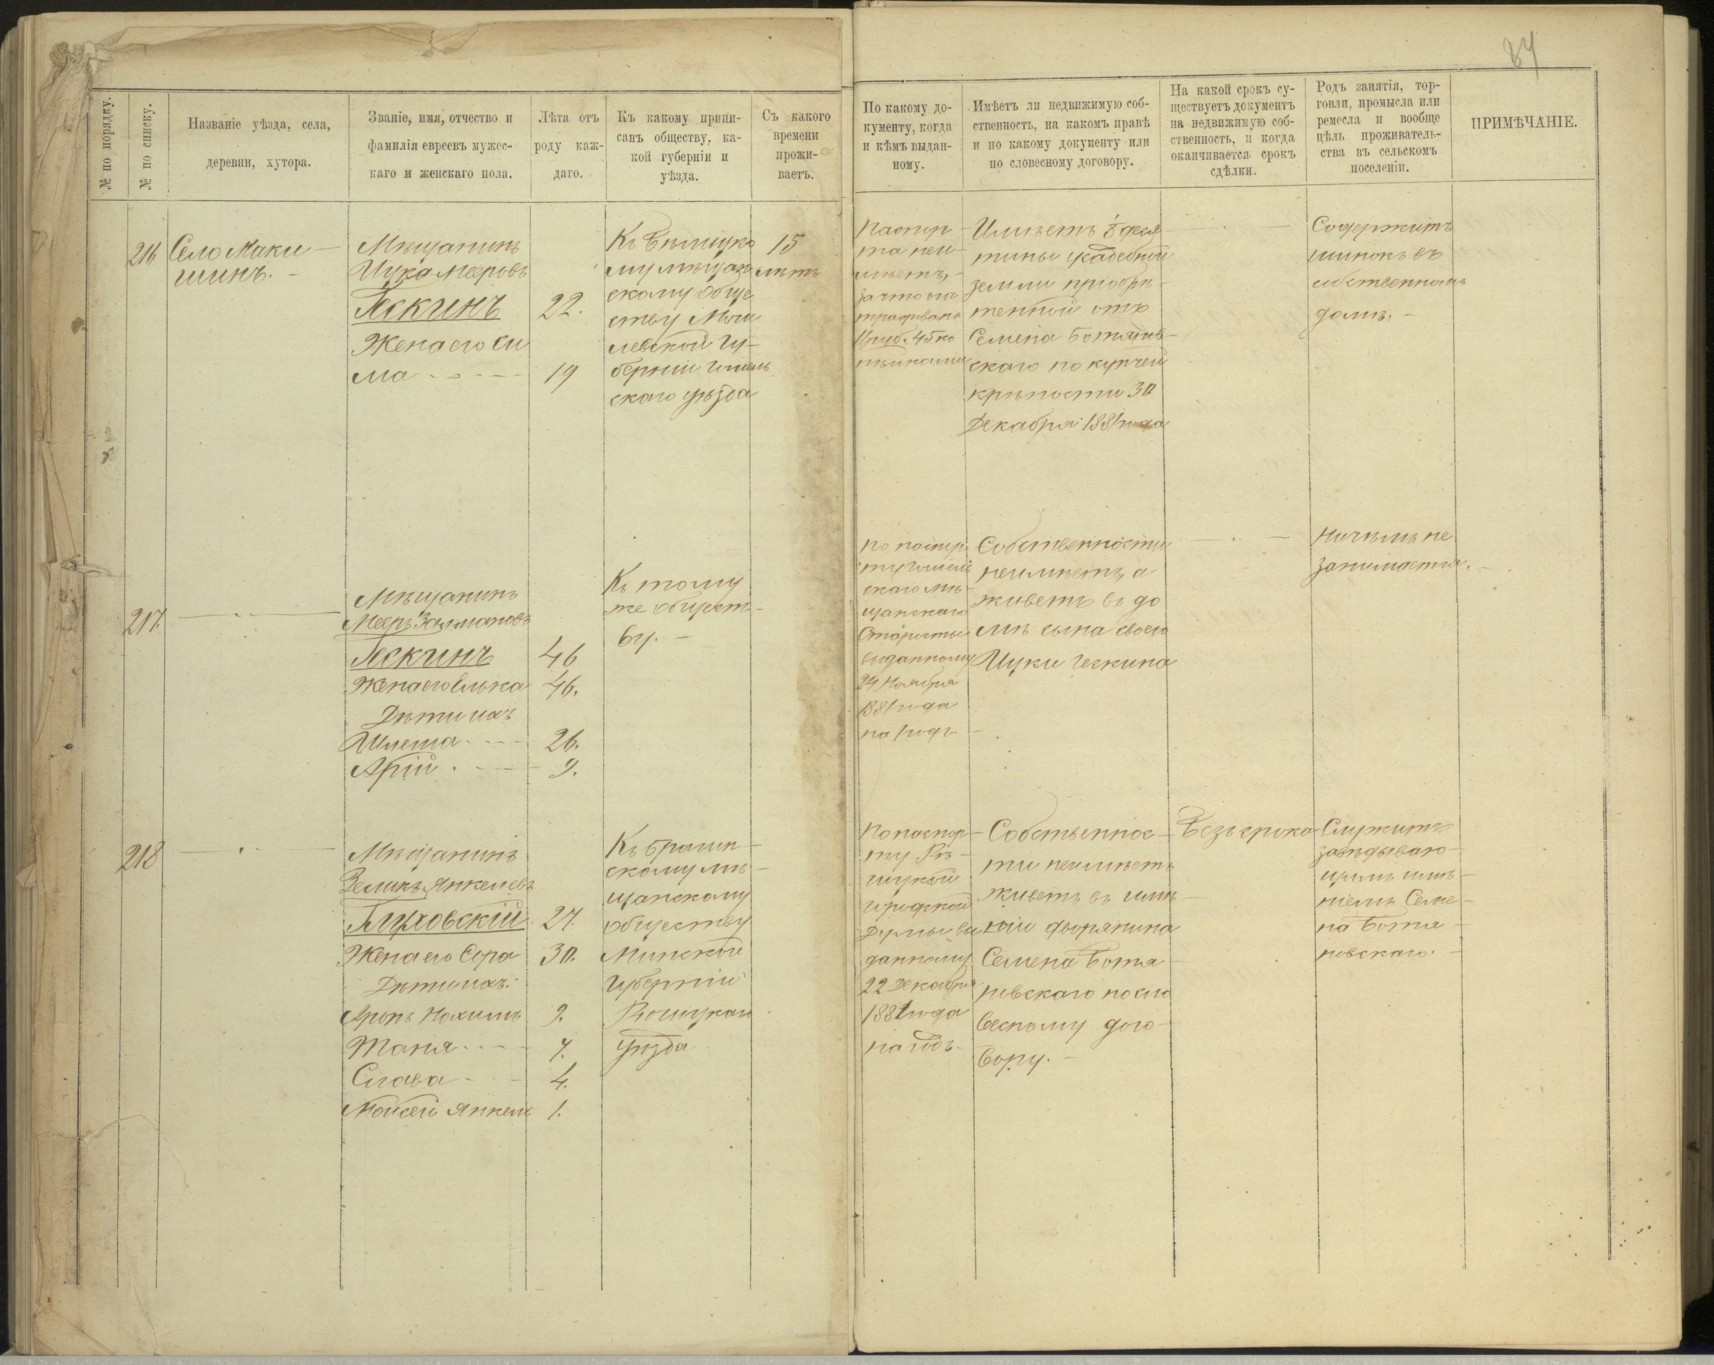 84
№ по порядку.
№ по списку.
Названіе уѣзда, села,
деревни, хутора.
Званіе, имя, отчество и
фамилія евреевъ мужес-
каго и женскаго пола.
Лѣта отъ
роду каж-
даго.
Къ какому припи-
санъ обществу, ка-
кой губерніи и
уѣзда.
Съ какого
времени
прожи-
ваетъ.
По какому до-
кументу, когда
и кѣмъ выдан-
ному.
Имѣетъ ли недвижимую соб-
ственность, на какомъ правѣ
и по какому документу или
по словесному договору.
На какой срокъ су-
ществуетъ документъ
на недвижимую соб-
ственность, и когда
оканчивается срокъ
сдѣлки.
Родъ занятія, тор-
говли, промысла или
ремесла и вообще
цѣль проживатель-
ства въ сельскомъ
поселеніи.
ПРИМѢЧАНІЕ.
216
Село Маки
шинъ.
Мѣщанинъ
Цука Мееровъ
Гескинъ 22.
Жена его Си
ма 19
скому обще
ству Моги
левской Гу-
берніи Гомель
скаго уѣзда
15
лѣтъ
Паспор
та неи
мѣетъ,
за что
1 руб. 45 ко
пѣйками
Имѣетъ 8 деся
тины усадебной
земли приобрѣ
тенной отъ
Семена Ботянов
скаго по купчей
крѣпости 30
Декабря 1881 года
Содержитъ
шинокъ въ
собственномъ
домѣ.
217.
Мѣщанинъ
Мееръ Залмановъ
Гескинъ 46
Жена его Элька 46.
Дѣти ихъ
Шлема 26.
Арій 9.
Къ тому
же общест-
ву.
По паспор
ту Гомель
скаго мѣ
щанскаго
Старосты
выданному
24 Ноября
1881 года
на годъ
Собственности
неимѣетъ, а
живетъ въ до
мѣ сына своего
Цуки Гескина
Ничѣмъ не
занимается.
218
Мѣщанинъ
Зеликъ Янкелевъ
Глуховскій 27.
Жена его Сора 30.
Дѣти ихъ:
Аронъ Нохимъ 9.
Таня 7.
Слава 4.
Мойсей Янкель 1.
Къ Брагин
скому мѣ
щанскому
обществу
Минской
Губерніи
Рѣчицкаго
уѣзда
По паспор
ту Рѣ
чицкой
Городской
Думы вы
данному
22 Декабря
1881 года
на годъ
Собственнос
ти неимѣетъ
живетъ въ имѣ
ніи дворянина
Семена Ботя
новскаго посло
весному дого
вору.
Безъ срока
Служитъ
завѣдываю
щимъ имѣ
ніемъ Семе
на Ботя
новскаго.